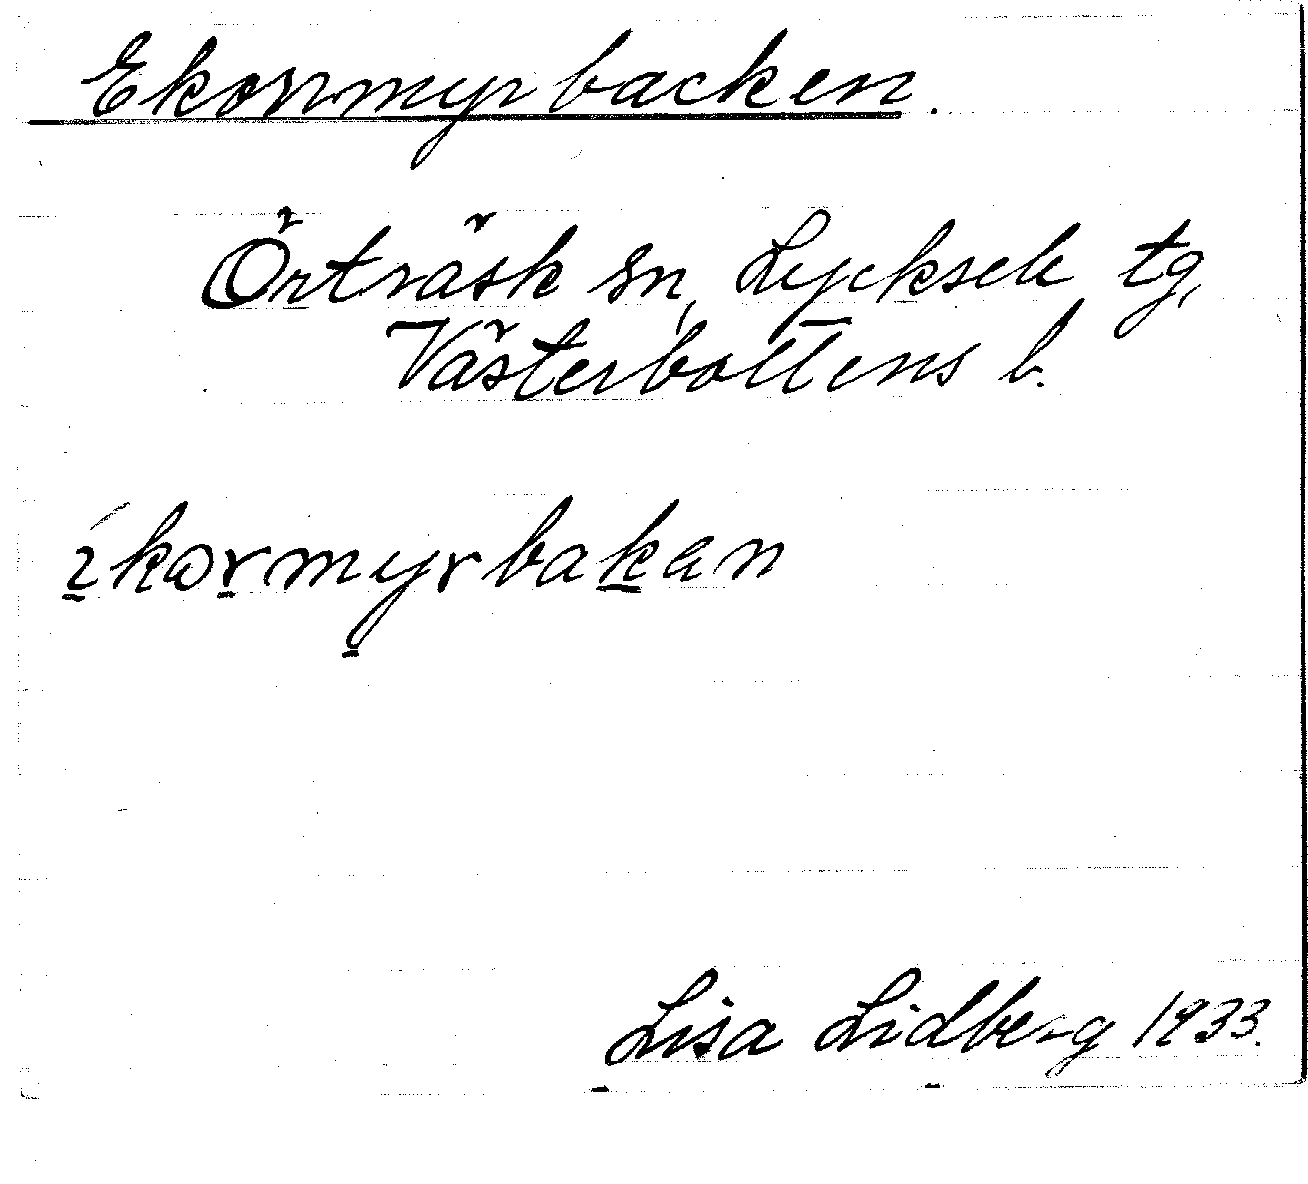 Ekorrmyrbacken.
Örträsk sn, Lycksele tg,
Västerbottens l.
ékormyrbakan
Lisa Lidberg 1933.